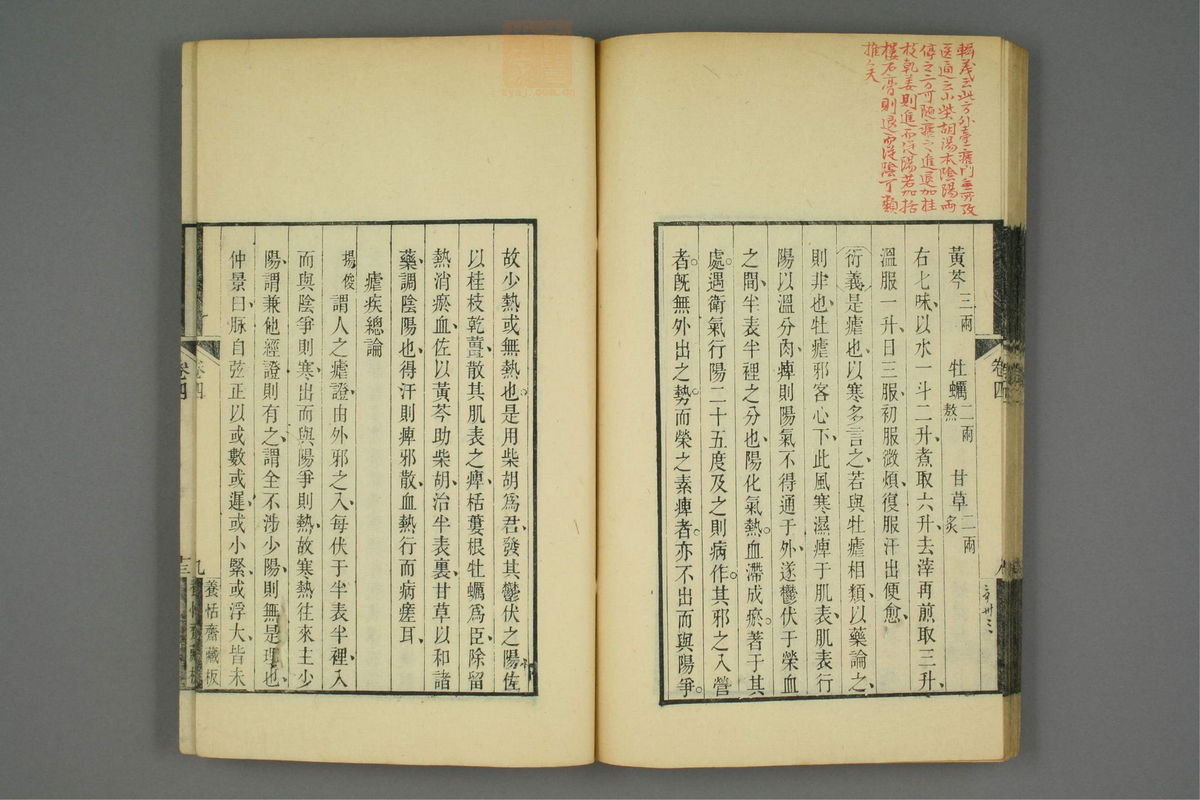 輯義云此方外臺瘧門無所攷
医通云小柴胡湯本陰陽兩
停之方可隨瘧之進退加桂
枝乾姜則進而從陽若加括
樓石膏則退而從陰可類
推之矣
黃芩三兩 牡蠣二兩熬 甘草二兩炙
右七味、以水一斗二升、煮取六升、去滓再煎取三升、
溫服一升、日三服、初服微煩、復服汗出便愈、
衍義是瘧也、以寒多言之、若與牡瘧相類、以藥論之、
則非也、牡瘧邪客心下、此風寒濕痺于肌表、肌表行
陽以溫分肉、痺則陽氣不得通于外、遂鬱伏于榮血
之間、半表半裡之分也、陽化氣熱。血滯成瘀。著于其
處。遇衛氣行陽二十五度及之則病作。其邪之入營
者。旣無外出之勢而榮之素痺者。亦不出而與陽爭。
卷四
故少熱或無熱也。是用柴胡爲君、發其鬱伏之陽、佐
以桂枝乾薑、散其肌表之痺、栝蔞根牡蠣爲臣、除留
熱消瘀血、佐以黃芩助柴胡、治半表裏、甘草以和諸
藥、調陰陽也、得汗則痺邪散、血熱行而病瘥耳、
瘧疾總論
楊俊謂人之瘧證、由外邪之入、每伏于半表半裡、入
而與陰爭則寒、出而與陽爭則熱、故寒熱往來、主少
陽、謂兼他經證則有之、謂全不涉少陽、則無是理也、
仲景曰、脉自弦、正以或數或遲、或小緊、或浮大、皆未
卷四
九
養恬齋藏板
卷四
十三